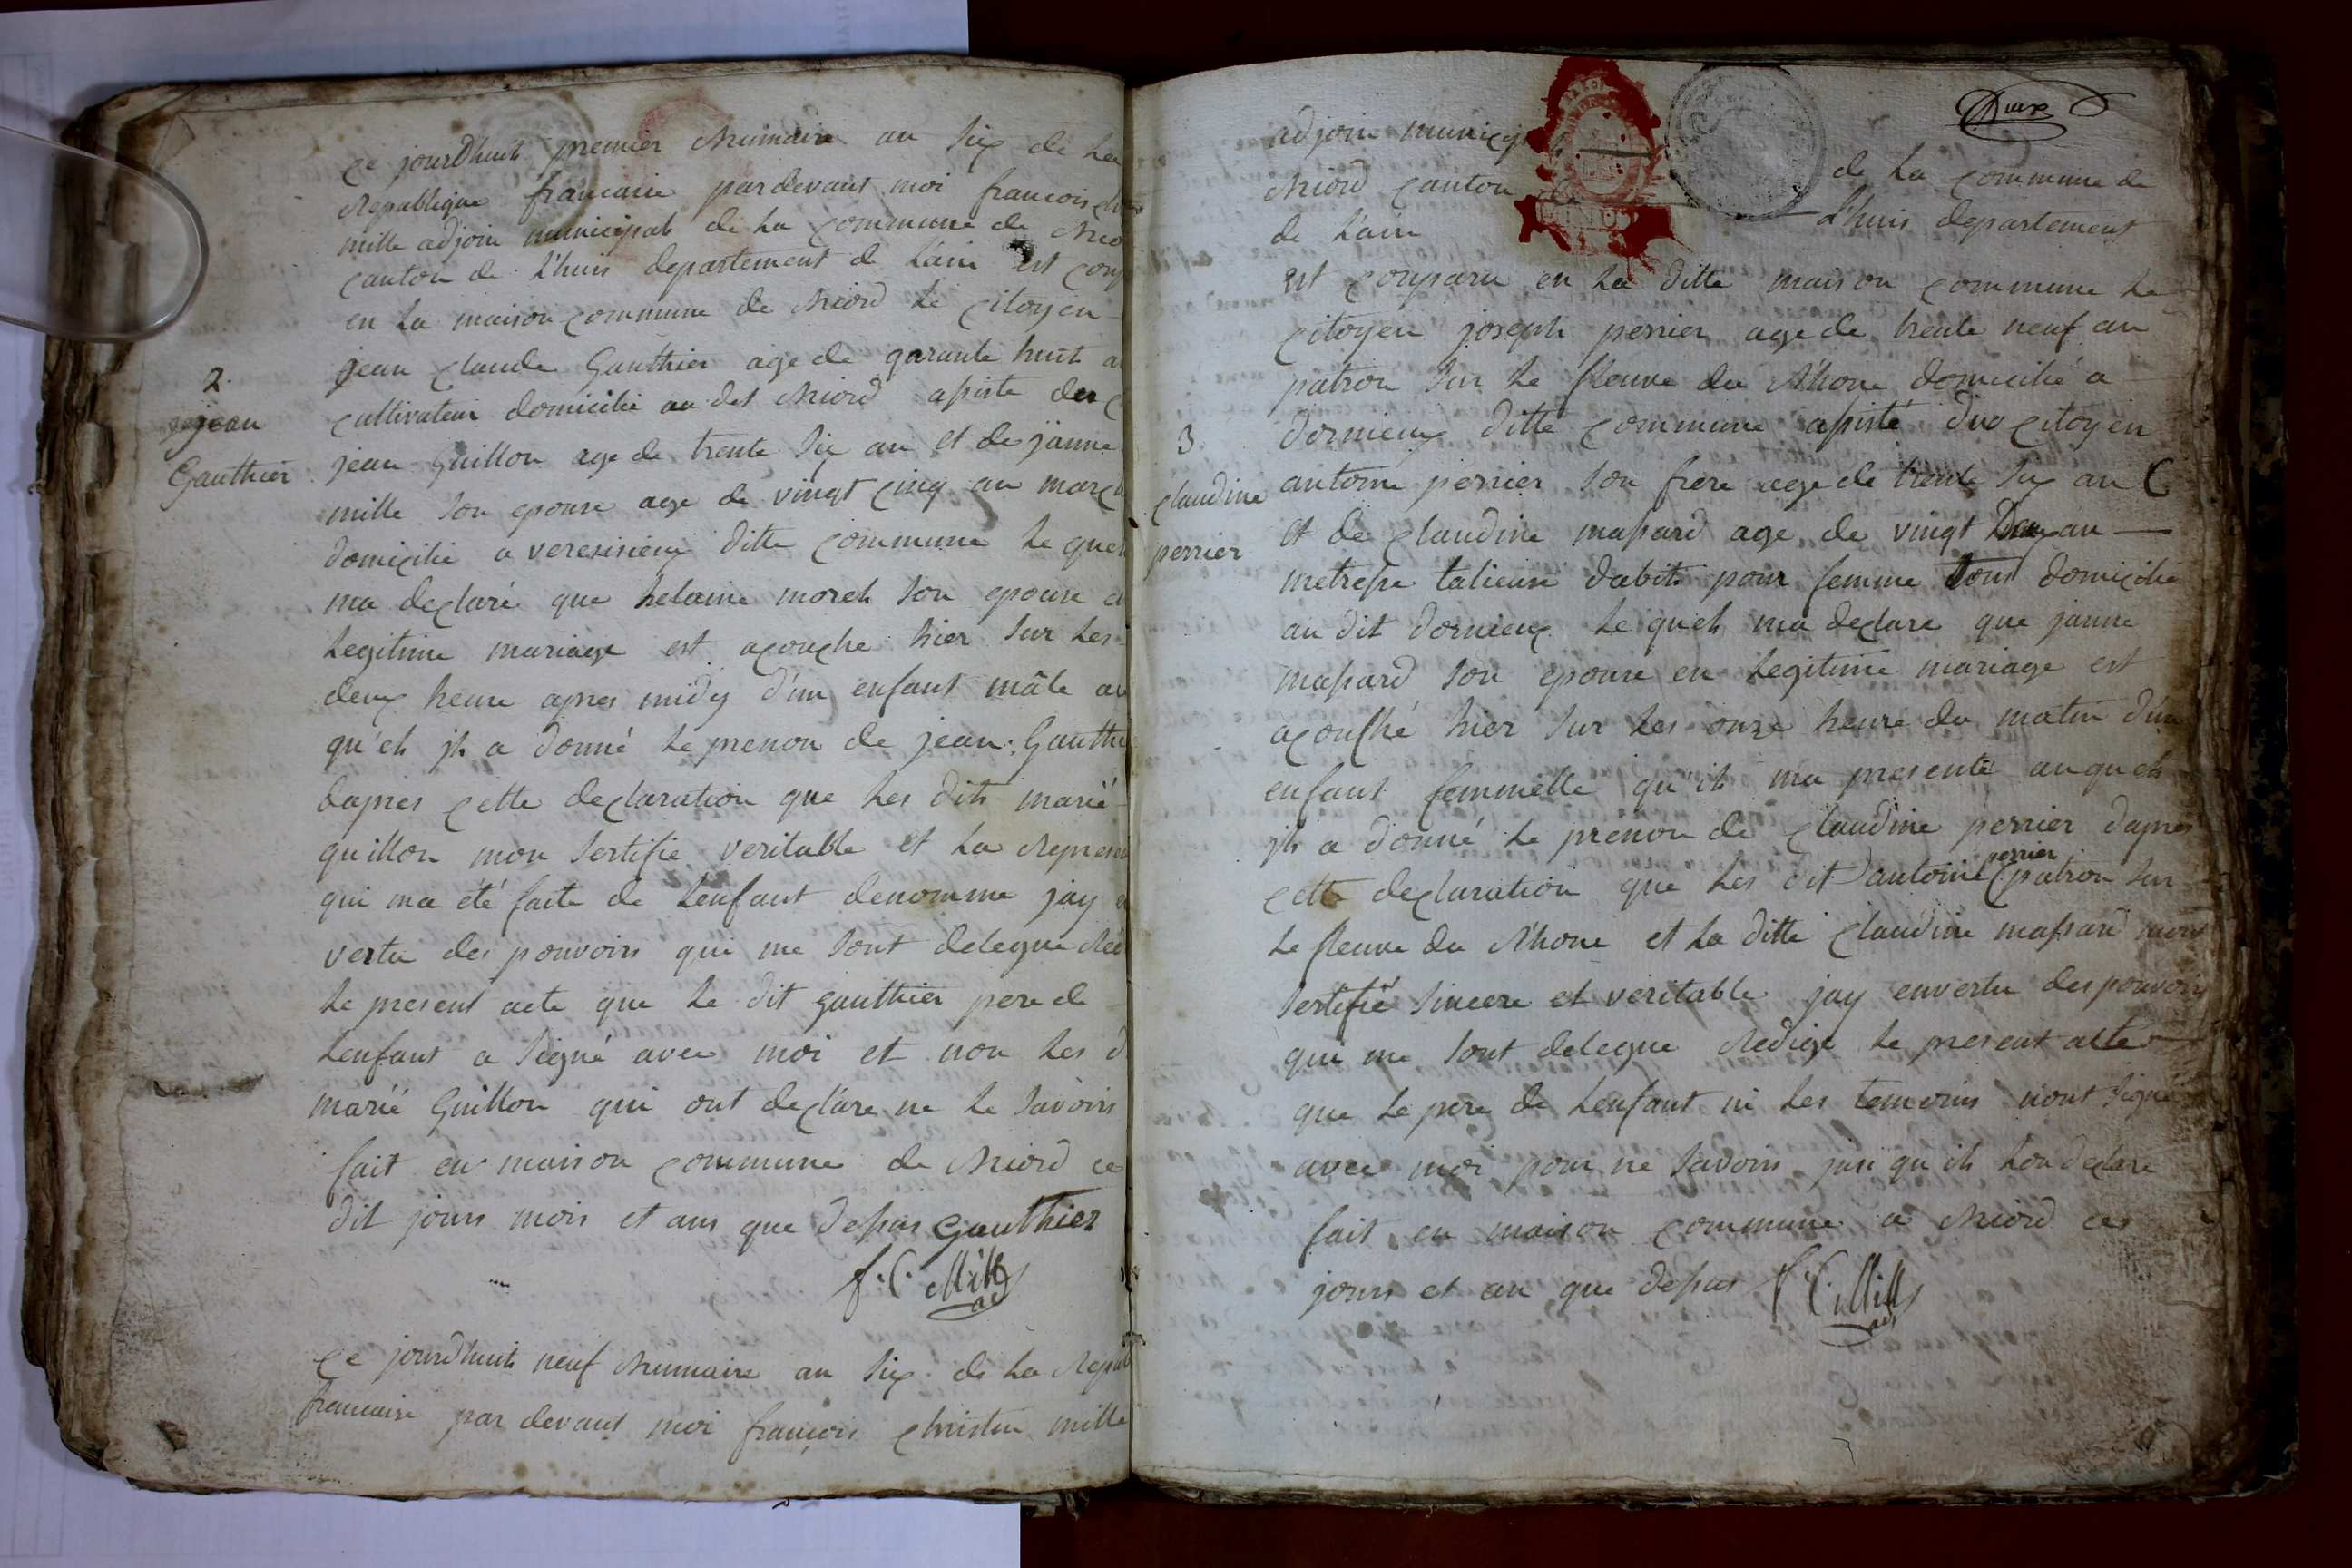 ce jourdhuit premier Brumaire an Six de La
Republique francaise pardevant moi francois
mille adjoin municipal de La commune de Brio
canton de L'huis departement de L'ain est comp
en La maison commune de Briord Le Citoyen
jean Claude Gauthier age de qarante huit a
cultivateur domicilié au dit Briord assiste des c
2.
jean
Gauthier
jean Guillon age de trente Six an et de janne
mille Son epouse age de vingt cinq an march
domicilie a veresieux ditte commune Le quel
ma declaré que helaine morel Son epouse e
Legitime mariage est acouche hier Sur Les
deux heure apres midy d'un enfant mâle au
qu'el jl a donné Le prenon de jean Gauthi
dapres cette declaration que Les dits marié
guillon mon Sertifie veritable et La Represen
qui ma été faite de Lenfant denomme jay e
vertu des pouvoirs qui me Sont delegue Red
Le present acte que Le dit gauthier pere de
Lenfant a Signé avec moi et non Les d
marié Guillon qui ont declare ne Le Savoirs
fait en maison commune de Briord ce
dit jours mois et ans que depus Gauthier
f. C. Mille
adj
ce jourdhuit neuf Brumaire an Six de La Repub
francaise par devant moi françois christin mille
adjoin municip
de La commune de
Briord canton
L'huis departement
de L'ain
est comparu en La ditte maison commune Le
citoyen joseph perrier age de trente neuf an
patron Sur Le fleuve du Rhone domicilié a
dornieux ditte commune assisté du citoyen
3.
claudine
perrier
antoine perrier Son frere age de trente Six an
et de claudine massard age de vingt Deux an
metresse talieuse dabits pour femme tous domicilie
au dit dornieux Le quel ma declare que janne
massard Son epouse en Legitime mariage est
acouché hier Sur Les onze heure du matin d'un
enfant femmelle qu'il ma presenté auquel
jl a donné Le prenon de claudine perrier dapres
cette declaration que Les dit antoine perrier patron Sur
Le fleuve du Rhone et La ditte claudine massard mont
Sertifié Sincere et veritable jay envertu des pouvoirs
qui me Sont delegue Redige Le present acte
que Le pere de Lenfant ni Les temoins nont Signé
avec moi pour ne Savoirs jnsi qu'ils Lon declare
fait en maison commune a Briord ces
jours et an que depus f C. Mille
adj